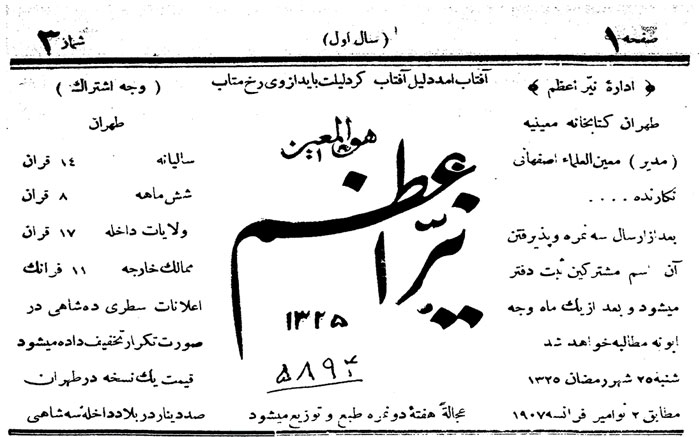 صفحه ۱
(سال اول)
شماره ۳
﴿ ادارهٔ نیّر اعظم ﴾
طهران کتابخانه معینیه
(مدیر) معین‌العلماء اصفهانی
نکارنده ....
بعد از ارسال سه نمره و پذیرفتن
آن اسم مشترکین ثبت دفتر
میشود و بعد از یك ماه وجه
ابونه مطالبه خواهد شد
شنبه ۲۵ شهر رمضان ۱۳۲۵
مطابق ۲ نوامبر فرانسه ۱۹۰۷
آفتاب امد دلیل آفتاب کر دلیلت باید از وی رخ متاب
هو المعین
نیّر اعظم
۱۳۲۵
۵۸۹۴
عجالهٔ هفتهٔ دو نمره طبع و توزیع میشود
(وجه اشتراك)
طهران
سالیانه ۱۴ قران
شش ماهه ۸ قران
ولایات داخله ۱۷ قران
ممالك خارجه ۱۱ فرانك
اعلانات سطری ده شاهی در
صورت تکرار تخفیف داده میشود
قیمت یك نسخه در طهران
صد دینار در بلاد داخله سه شاهی